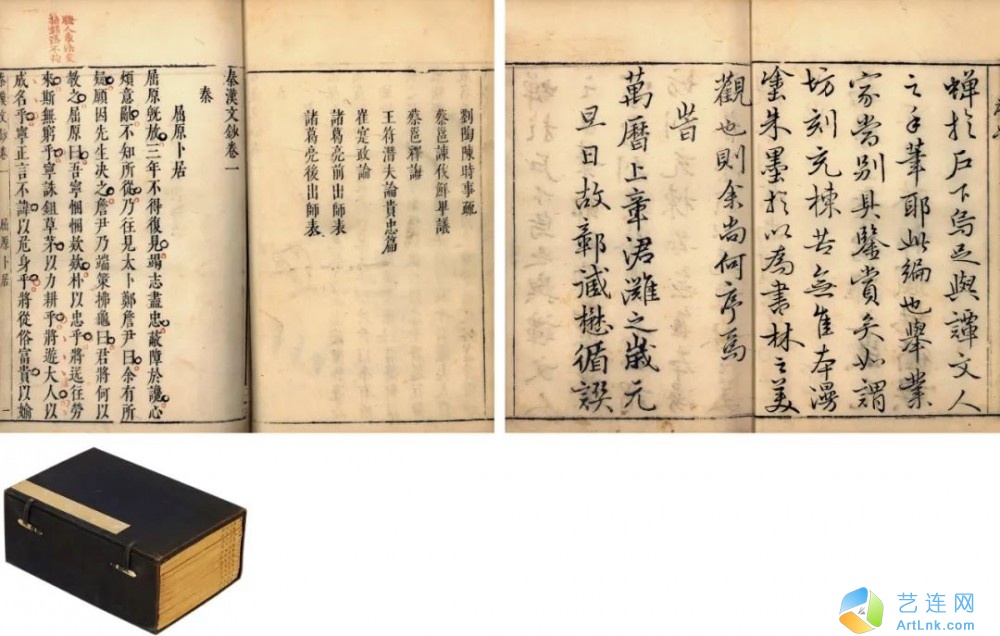 劉陶陳時事疏
蔡邕諫伐鮮卑議
蔡邕釋誨
王符潛夫論貴忠篇
崔寔政論
諸葛亮前出師表
諸葛亮後出師表
秦漢文鈔卷一
秦
屈原卜居
屈原既放三年不得復見竭志盡忠蔽障於讒心
煩意亂不知所從乃往見太卜鄭詹尹曰余有所
疑願因先生決之詹尹乃端策拂龜曰君將何以
教之屈原曰吾寧悃悃欵欵朴以忠乎將送往勞
來斯無窮乎寧誅鉏草茅以力耕乎將遊大人以
成名乎寧正言不諱以危身乎將從俗富貴以媮
屈原卜居 一
蟬於戶下烏足與譚文人
之手筆耶此編也舉業
家當別具鑒賞矣如謂
坊刻充棟苦無隹本漫
塗朱墨於以為書林之美
觀也則余尚何序焉
旹
萬曆上章涒灘之嵗元
旦日故鄣臧懋循譔
艺连网
ArtLnk.com